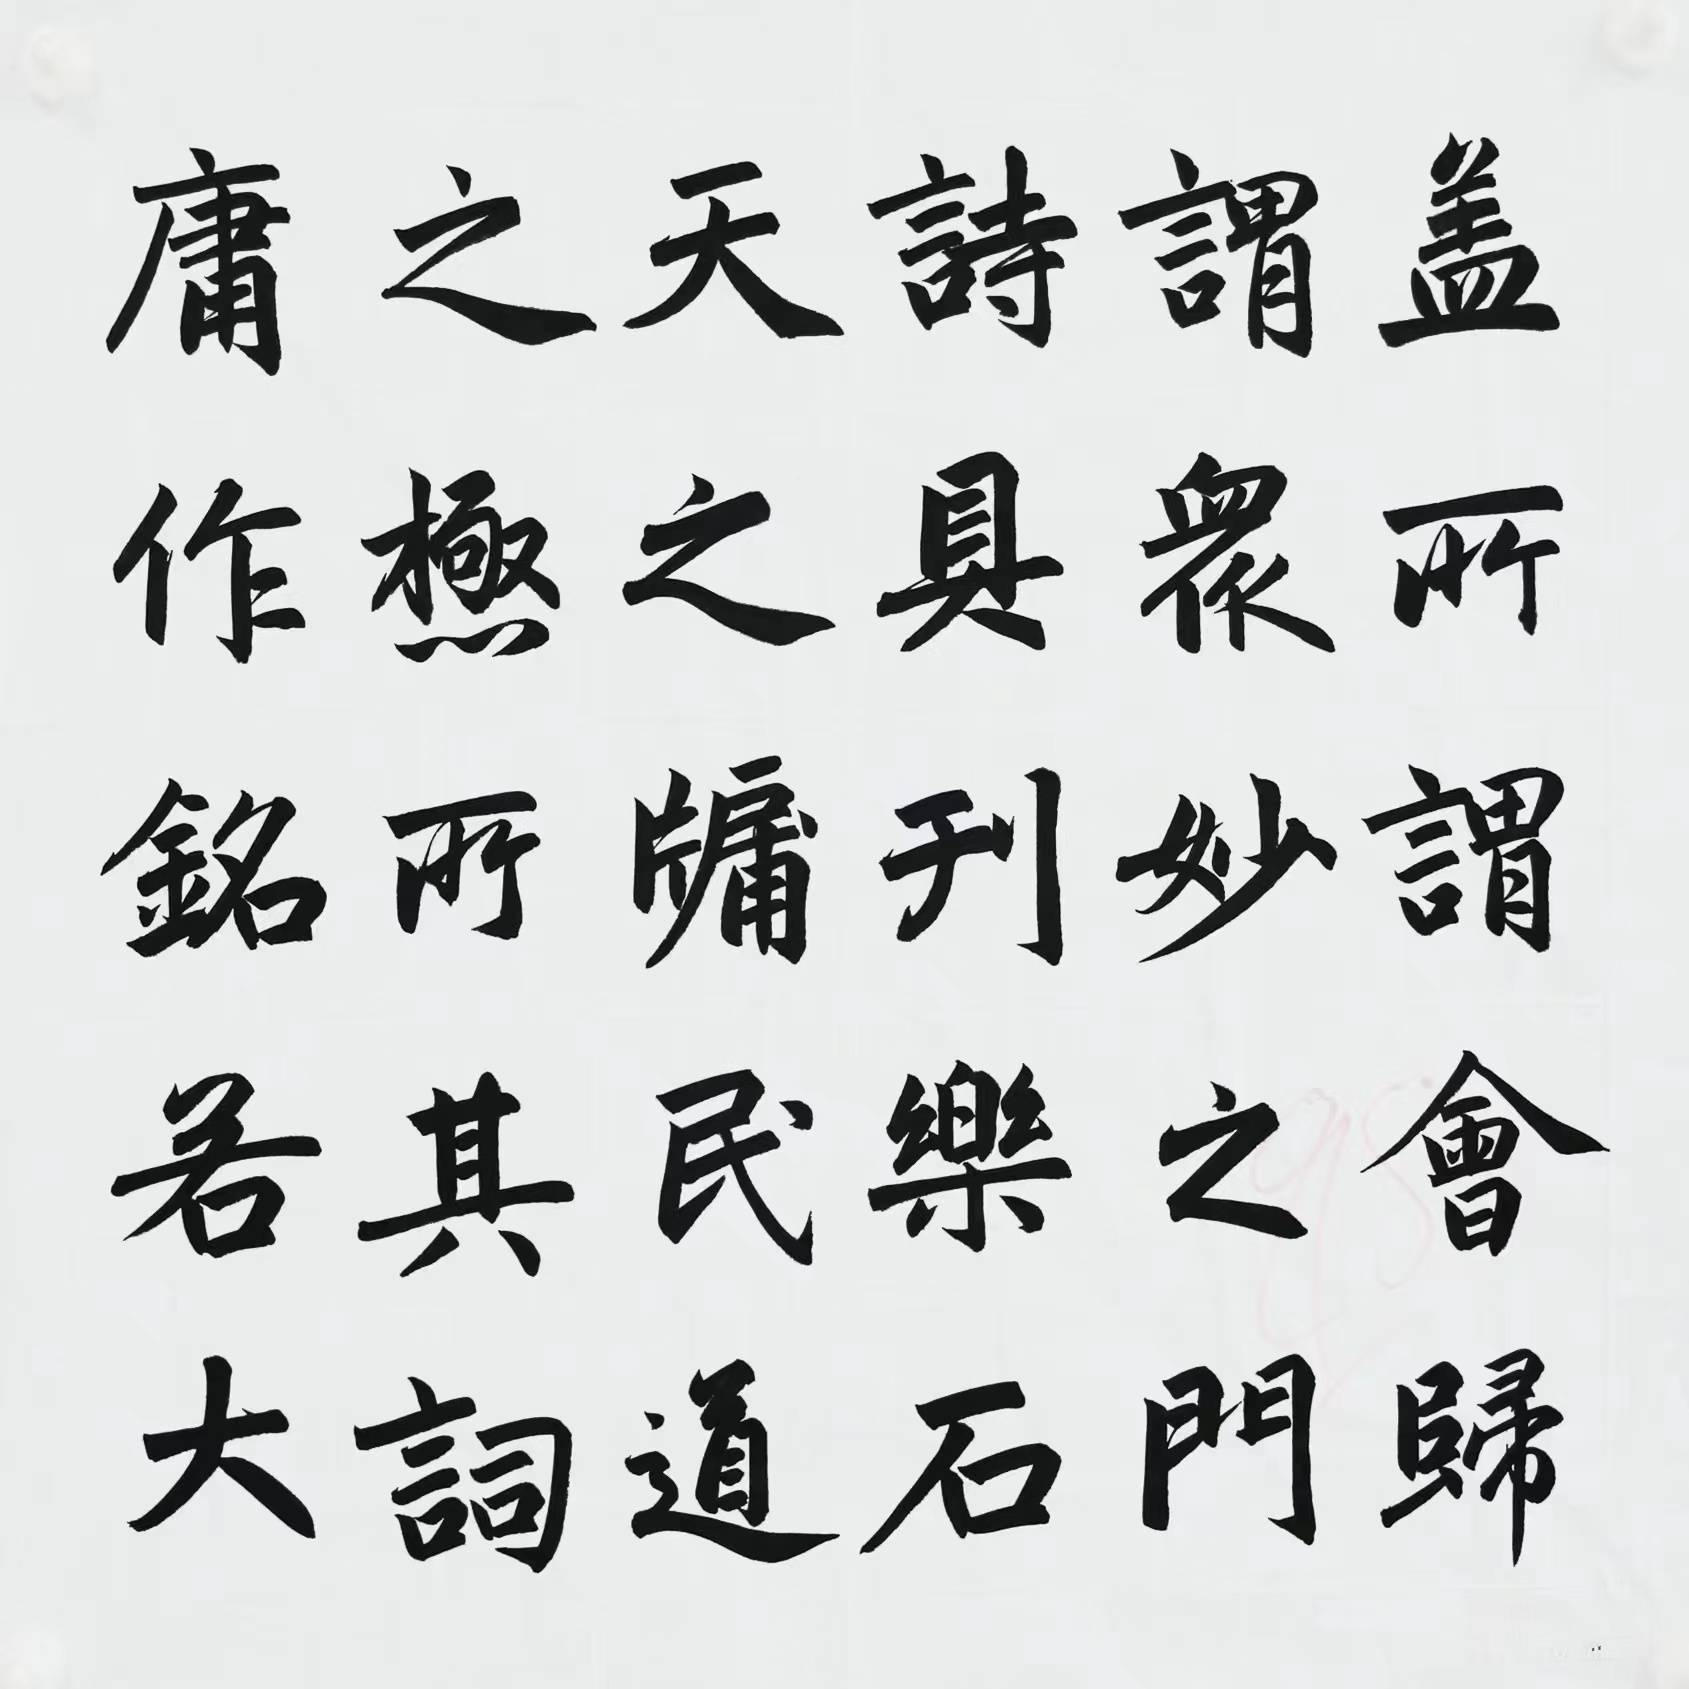 盖所謂會歸
謂衆妙之門
詩具刊樂石
天之牗民道
之極所其詞
庸作銘若大